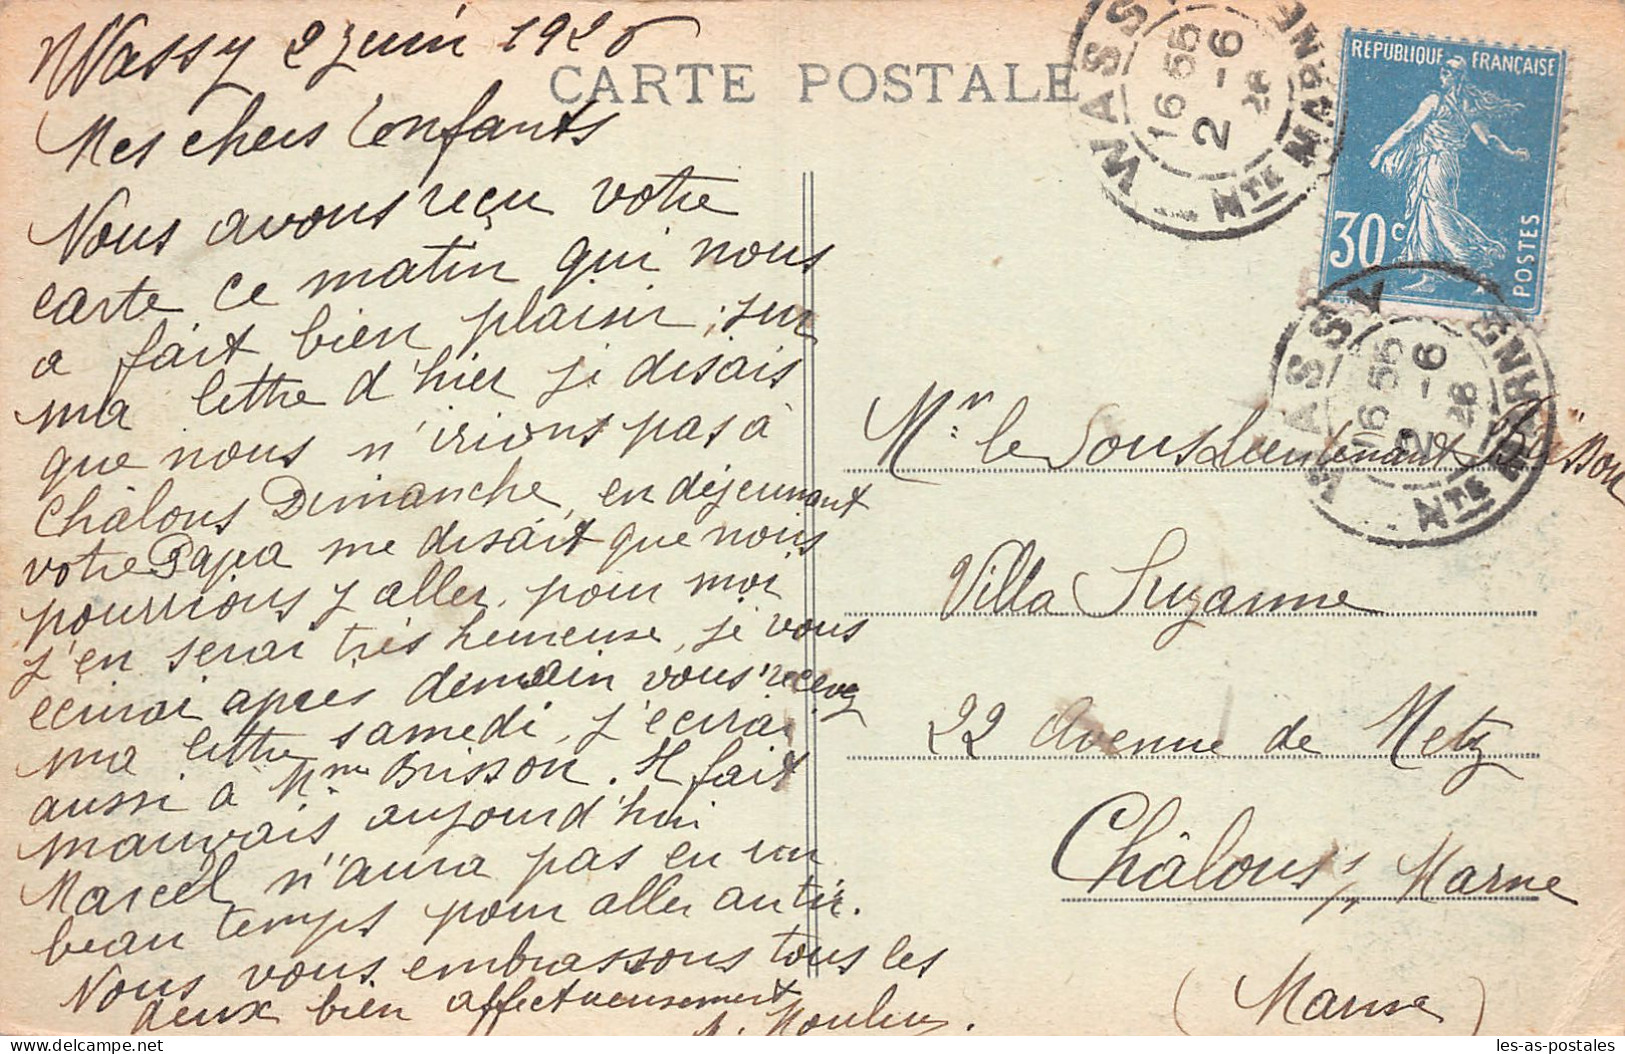 Wassy 2 Juin 1928
CARTE POSTALE
Mes chers Enfants
Nous avons reçu votre
carte ce matin qui nous
a fait bien plaisir ; sur
ma lettre d'hier je disais
que nous n'irions pas à
Châlons Dimanche, en déjeunant
votre Papa me disait que nous
pourrions y aller, pour moi
j'en serai très heureuse, je vous
écrirai après demain vous recevez
ma lettre samedi, j'écrirai
aussi à Mme Brisson. Il fait
mauvais aujourd'hui
Marcel n'aura pas eu un
beau temps pour aller au tir.
Nous vous embrassons tous les
deux bien affectueusement
M. Moulin.
WASSY
16 55
2 - 6
28
Nte MARNE
REPUBLIQUE FRANÇAISE
30c
POSTES
WASSY
16 55
2 - 6
28
Nte MARNE
Mr le Sous Lieutenant Brisson
Villa Suzanne
22 Avenue de Metz
Châlons s/ Marne
(Marne)
les-as-postales
delcampe.net